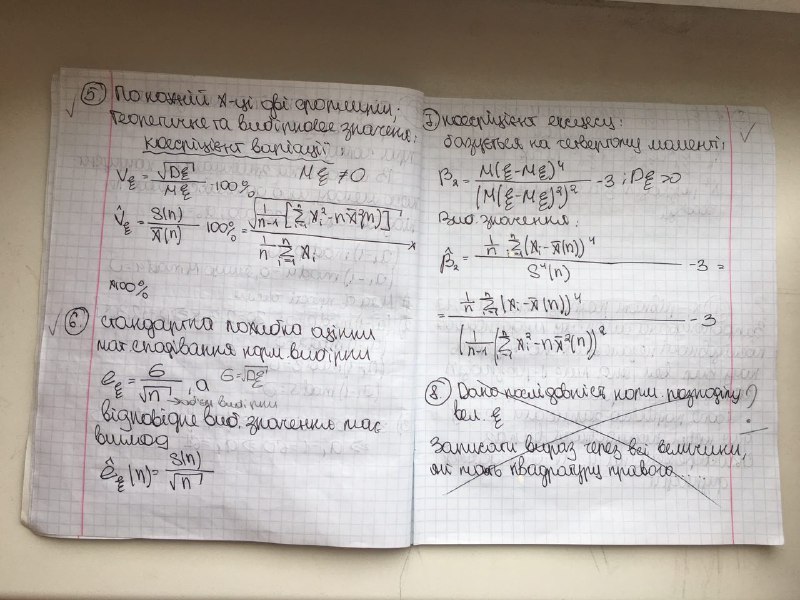 5) По кожній х-ці дві формули:
теоретичне та вибіркове значення:
коефіцієнт варіації
V_ξ = √Dξ / Mξ · 100%   Mξ ≠ 0
V̂_ξ = S(n) / x̄(n) 100% = √(1/(n-1) [∑_{i=1}^{n} x_i² - n x̄²(n)]) / (1/n ∑_{i=1}^{n} x_i) ×
×100%
6) стандартна похибка оцінки
мат сподівання норм вибірки
e_ξ = σ / √n, а   σ = √Dξ
→ обсяг вибірки
відповідне виб. значення має
вигляд
ê_ξ(n) = S(n) / √n
7) коефіцієнт ексцесу:
базується на четвертому моменті;
β₂ = M(ξ - Mξ)⁴ / (M(ξ - Mξ)²)² - 3; Dξ > 0
Виб значення:
β̂₂ = 1/n ∑_{i=1}^{n} (x_i - x̄(n))⁴ / S⁴(n) - 3 =
= 1/n ∑_{i=1}^{n} (x_i - x̄(n))⁴ / (1/(n-1) (∑_{i=1}^{n} x_i² - n x̄²(n)))² - 3
8) Дано послідовність норм. розподілу ?
вел. ξ
Записати вираз через всі величини,
які мають квадратуру правого